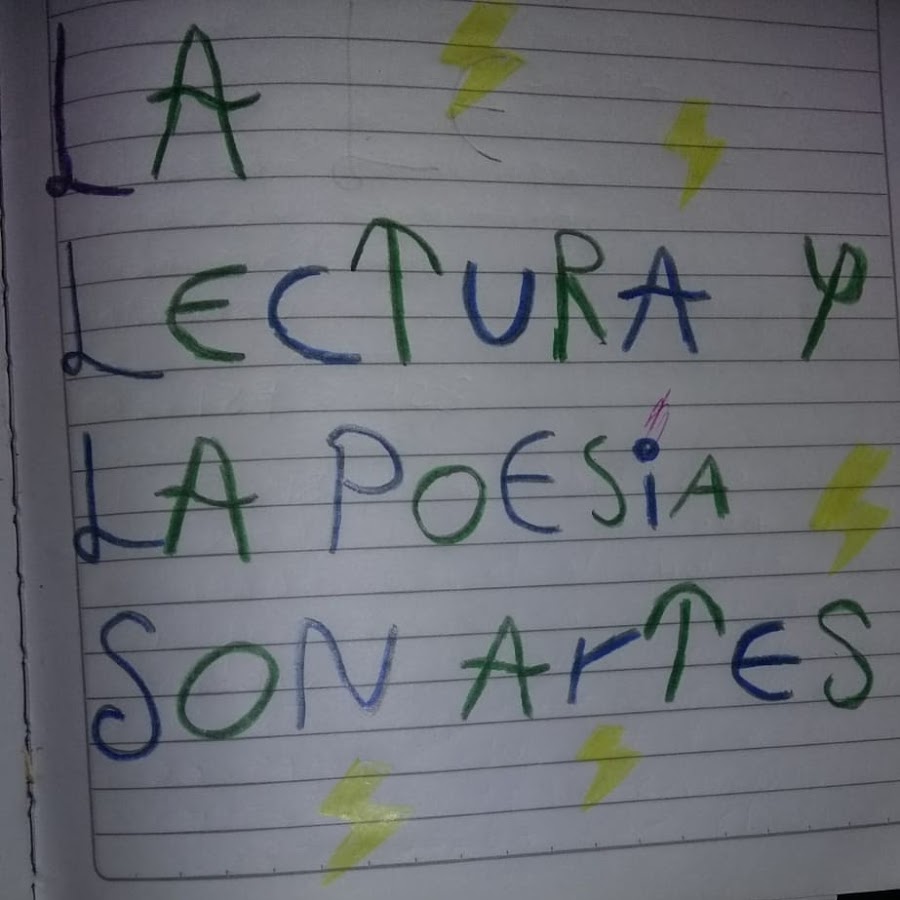 LA
LECTURA Y
LA POESiA
SON ArTES